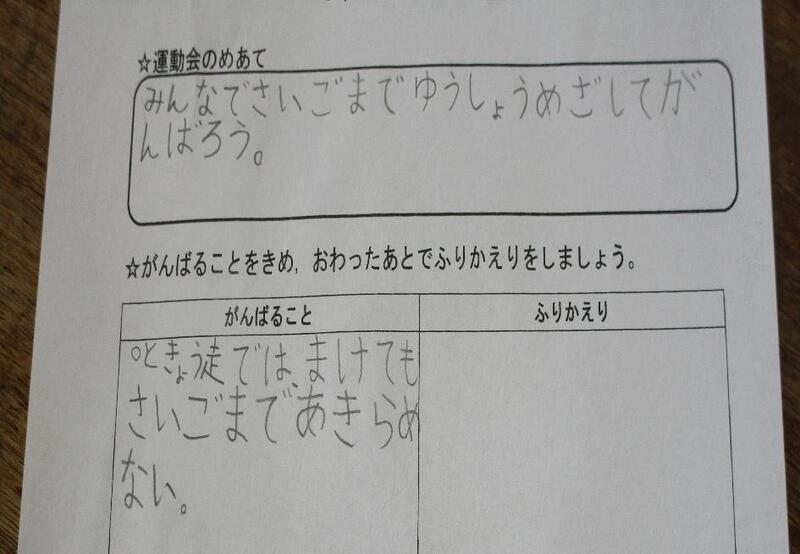 ☆運動会のめあて
みんなでさいごまでゆうしょうめざしてが
んばろう。
☆がんばることをきめ，おわったあとでふりかえりをしましょう。
がんばること
ふりかえり
○ときょう徒では、まけても
さいごまであきらめ
ない。